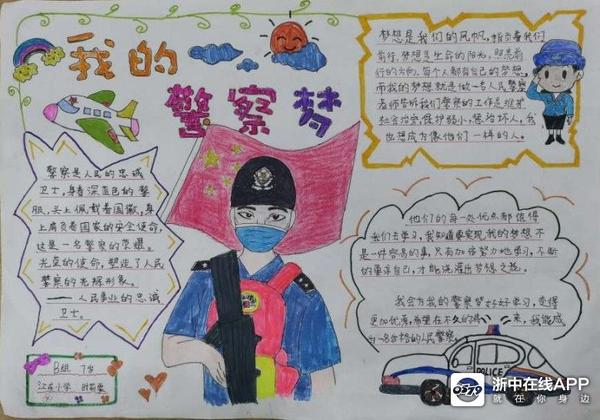 我的
警察梦
梦想是我们的风帆，指负着我们
前行，梦想是生命的阳光，照亮前
行的方向。每个人都有自己的梦想。
而我的梦想就是做一名人民警察
老师告诉我们警察的工作是维护
社会治安，保护弱小，惩治坏人，我
也想成为像他们一样的人。
警察是人民的忠诚
卫士，身着深蓝色的警
服，头上佩戴着国徽，身
上肩负着国家的安全使命，
这是一名警察的荣耀。
光荣的使命，塑造了人民
警察的光辉形象。
——人民事业的忠诚
卫士。
他们的每一处优点都值得
我们去学习，我知道要实现我的梦想不
是一件容易的事，只有加倍努力地学习，不断
的要求自己，才能浇灌出梦想之花。
我会为我的警察梦好好学习，变得
更加优秀，希望在不久的将来，我能成
为一名合格的人民警察。
B组 7岁
江东小学
POLICE
0579
浙中在线APP
就在你身边